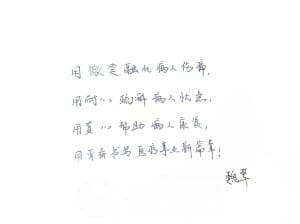 用微笑融化病人伤痛，
用耐心疏解病人忧虑，
用真心帮助病人康复，
用青春书写医疗事业新篇章！